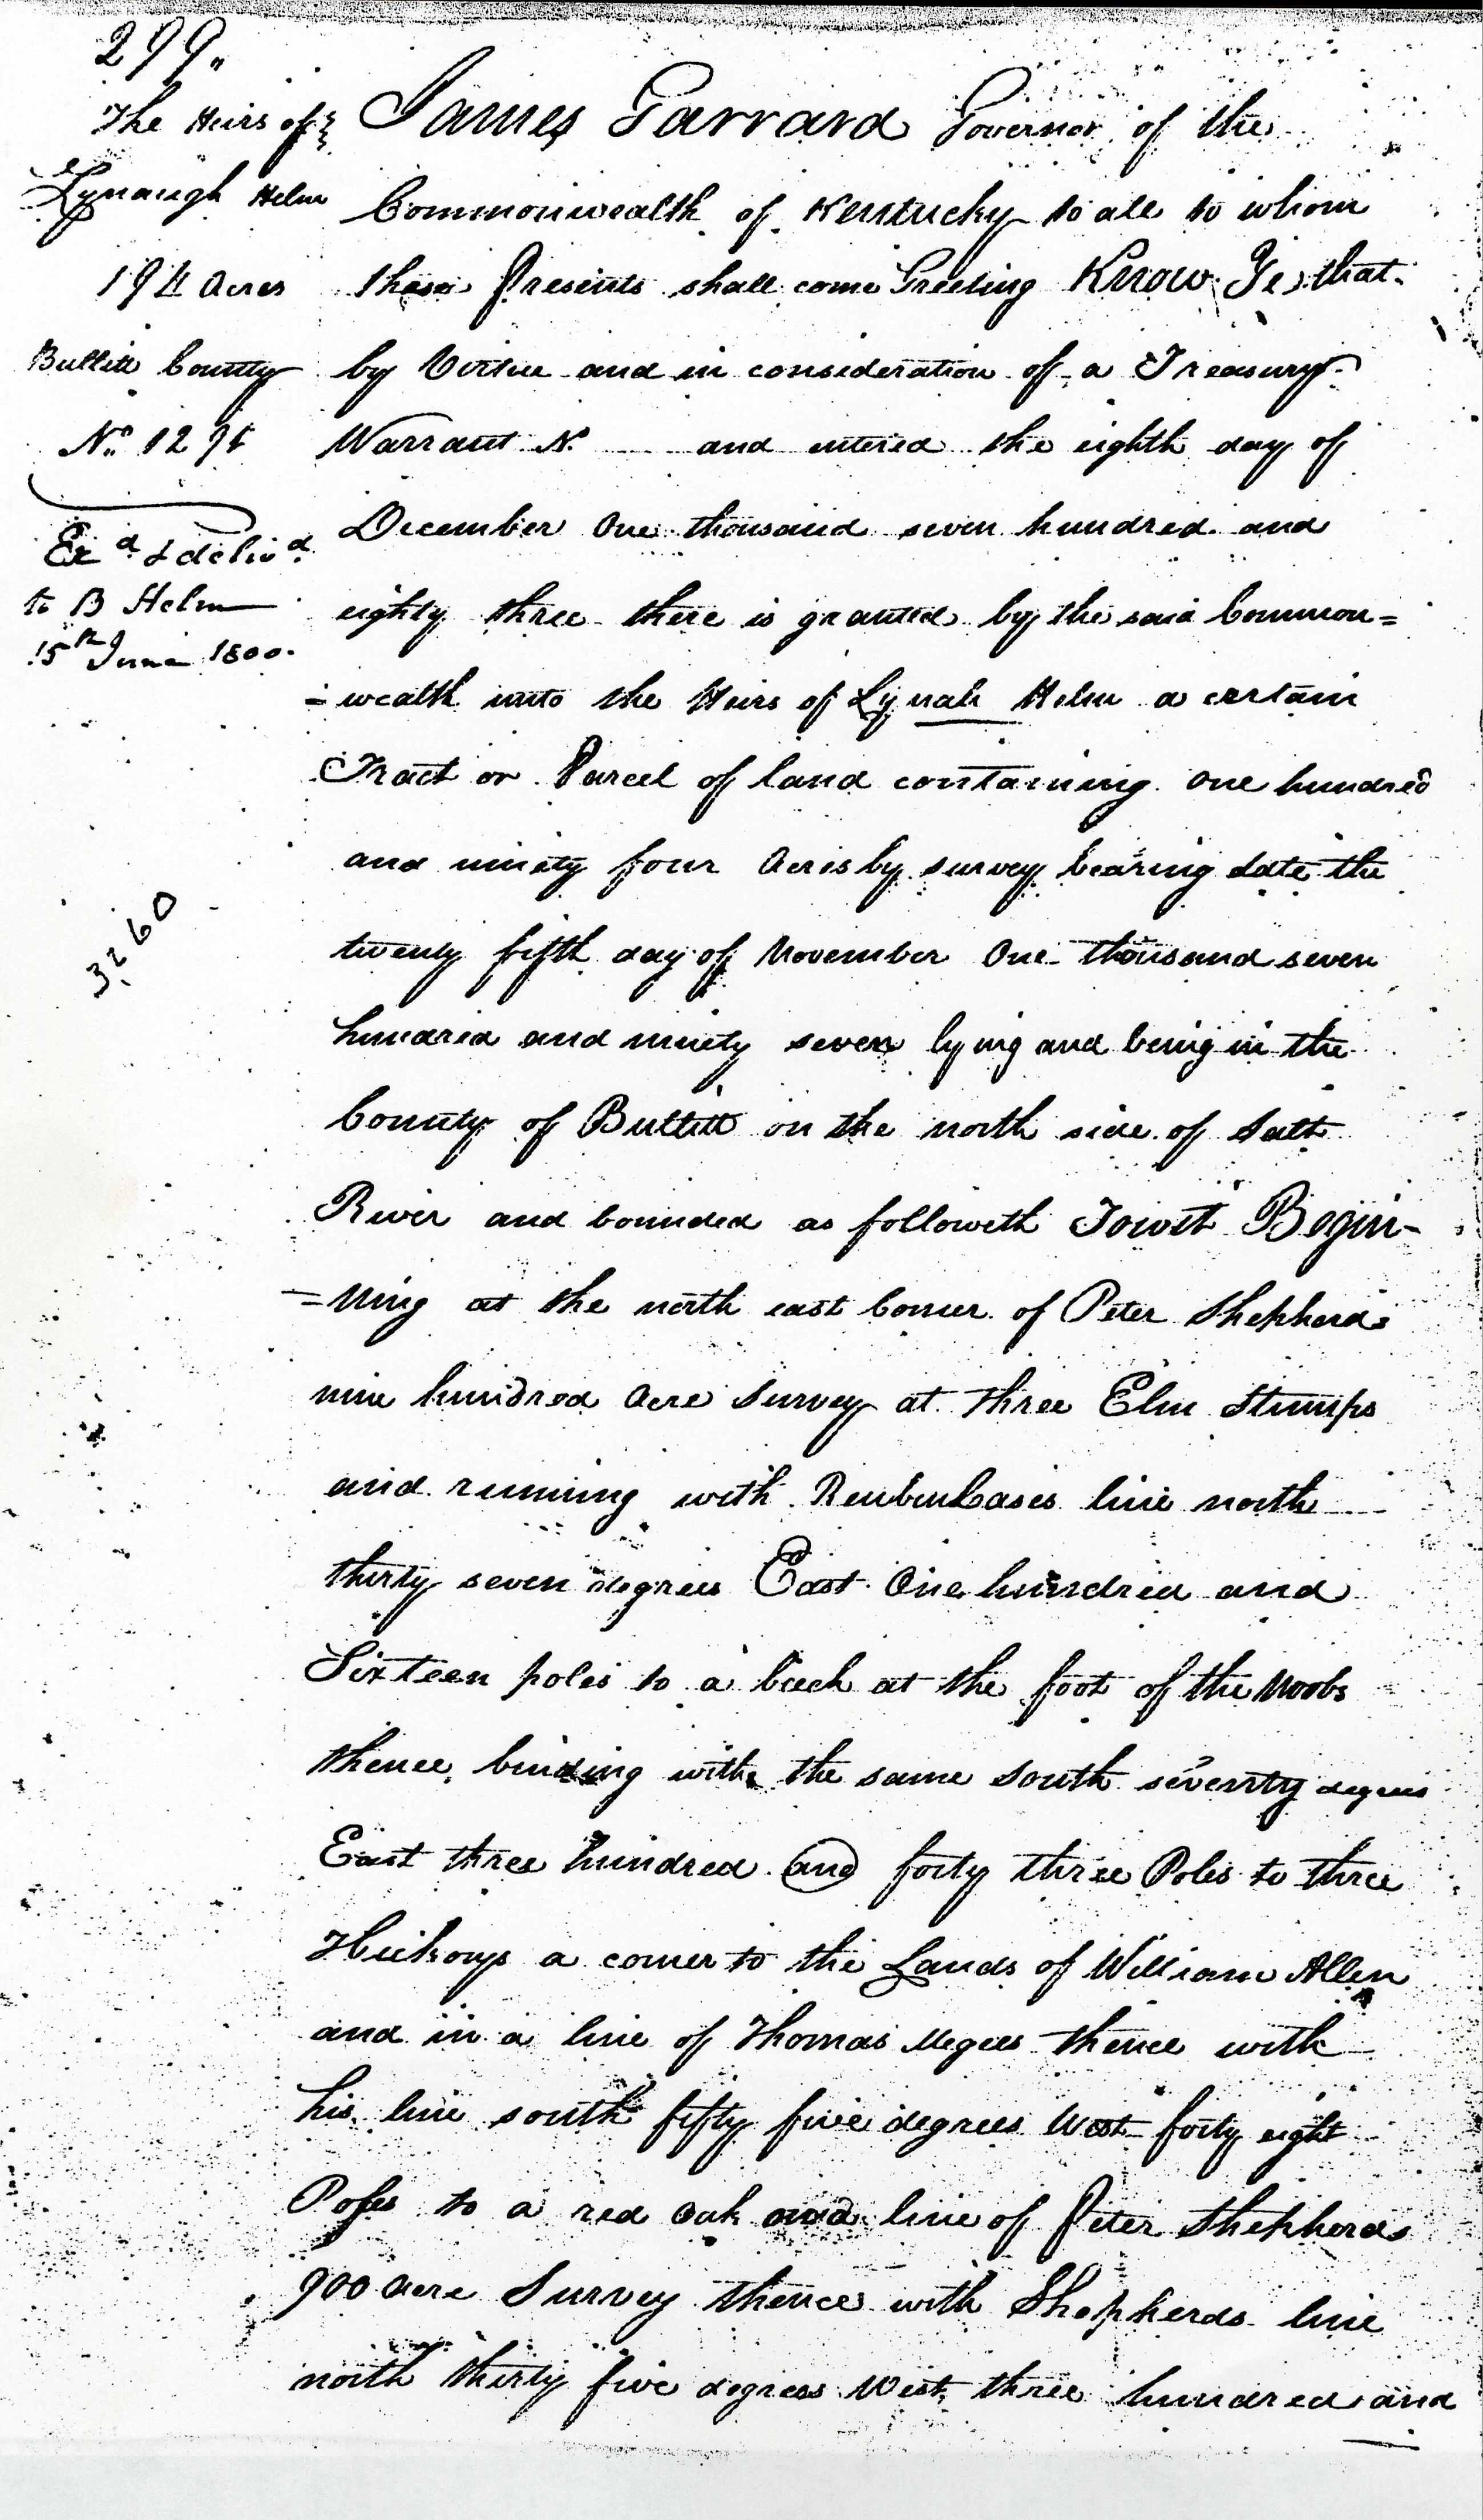 299.
The Heirs of
Lynaugh Helm
194 Acres
Bullitt County
No. 1294
Exd & delivd
to B Helm
15th June 1800.
3260
James Garrard Governor of the
Commonwealth of Kentucky to all to whom
these Presents shall come Greeting Know Ye that
by Virtue and in consideration of a Treasury
Warrant No. and entered the eighth day of
December One thousand seven hundred and
eighty three there is granted by the said Common=
=wealth unto the Heirs of Lynah Helm a certain
Tract or Parcel of land containing one hundred
and ninety four Acres by survey bearing date the
twenty fifth day of November One thousand seven
hundred and ninety seven lying and being in the
County of Bullitt on the north side of Salt
River and bounded as followeth Towit Begin-
=ning at the north east Corner of Peter Shepherds
nine hundred Acre Survey at three Elm Stumps
and running with Reuben Cases line north
thirty seven degrees East One hundred and
Sixteen poles to a beech at the foot of the Noobs
thence binding with the same South seventy degrees
East three hundred and forty three Poles to three
Hickorys a corner to the Lands of William Allen
and in a line of Thomas Megees thence with
his line south fifty five degrees West forty eight
Poles to a red Oak and line of Peter Shepherds
900 acre Survey thence with Shepherds line
north thirty five degrees West three hundred and